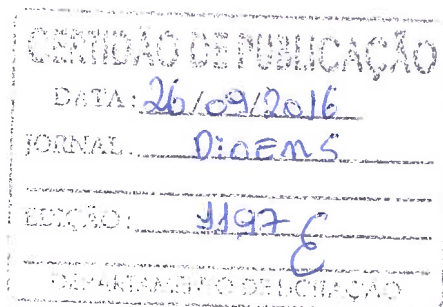 CERTIDÃO DE PUBLICAÇÃO
DATA: 26/09/2016
JORNAL: DioEms
EDIÇÃO: 1197
DEPARTAMENTO DE LICITAÇÃO